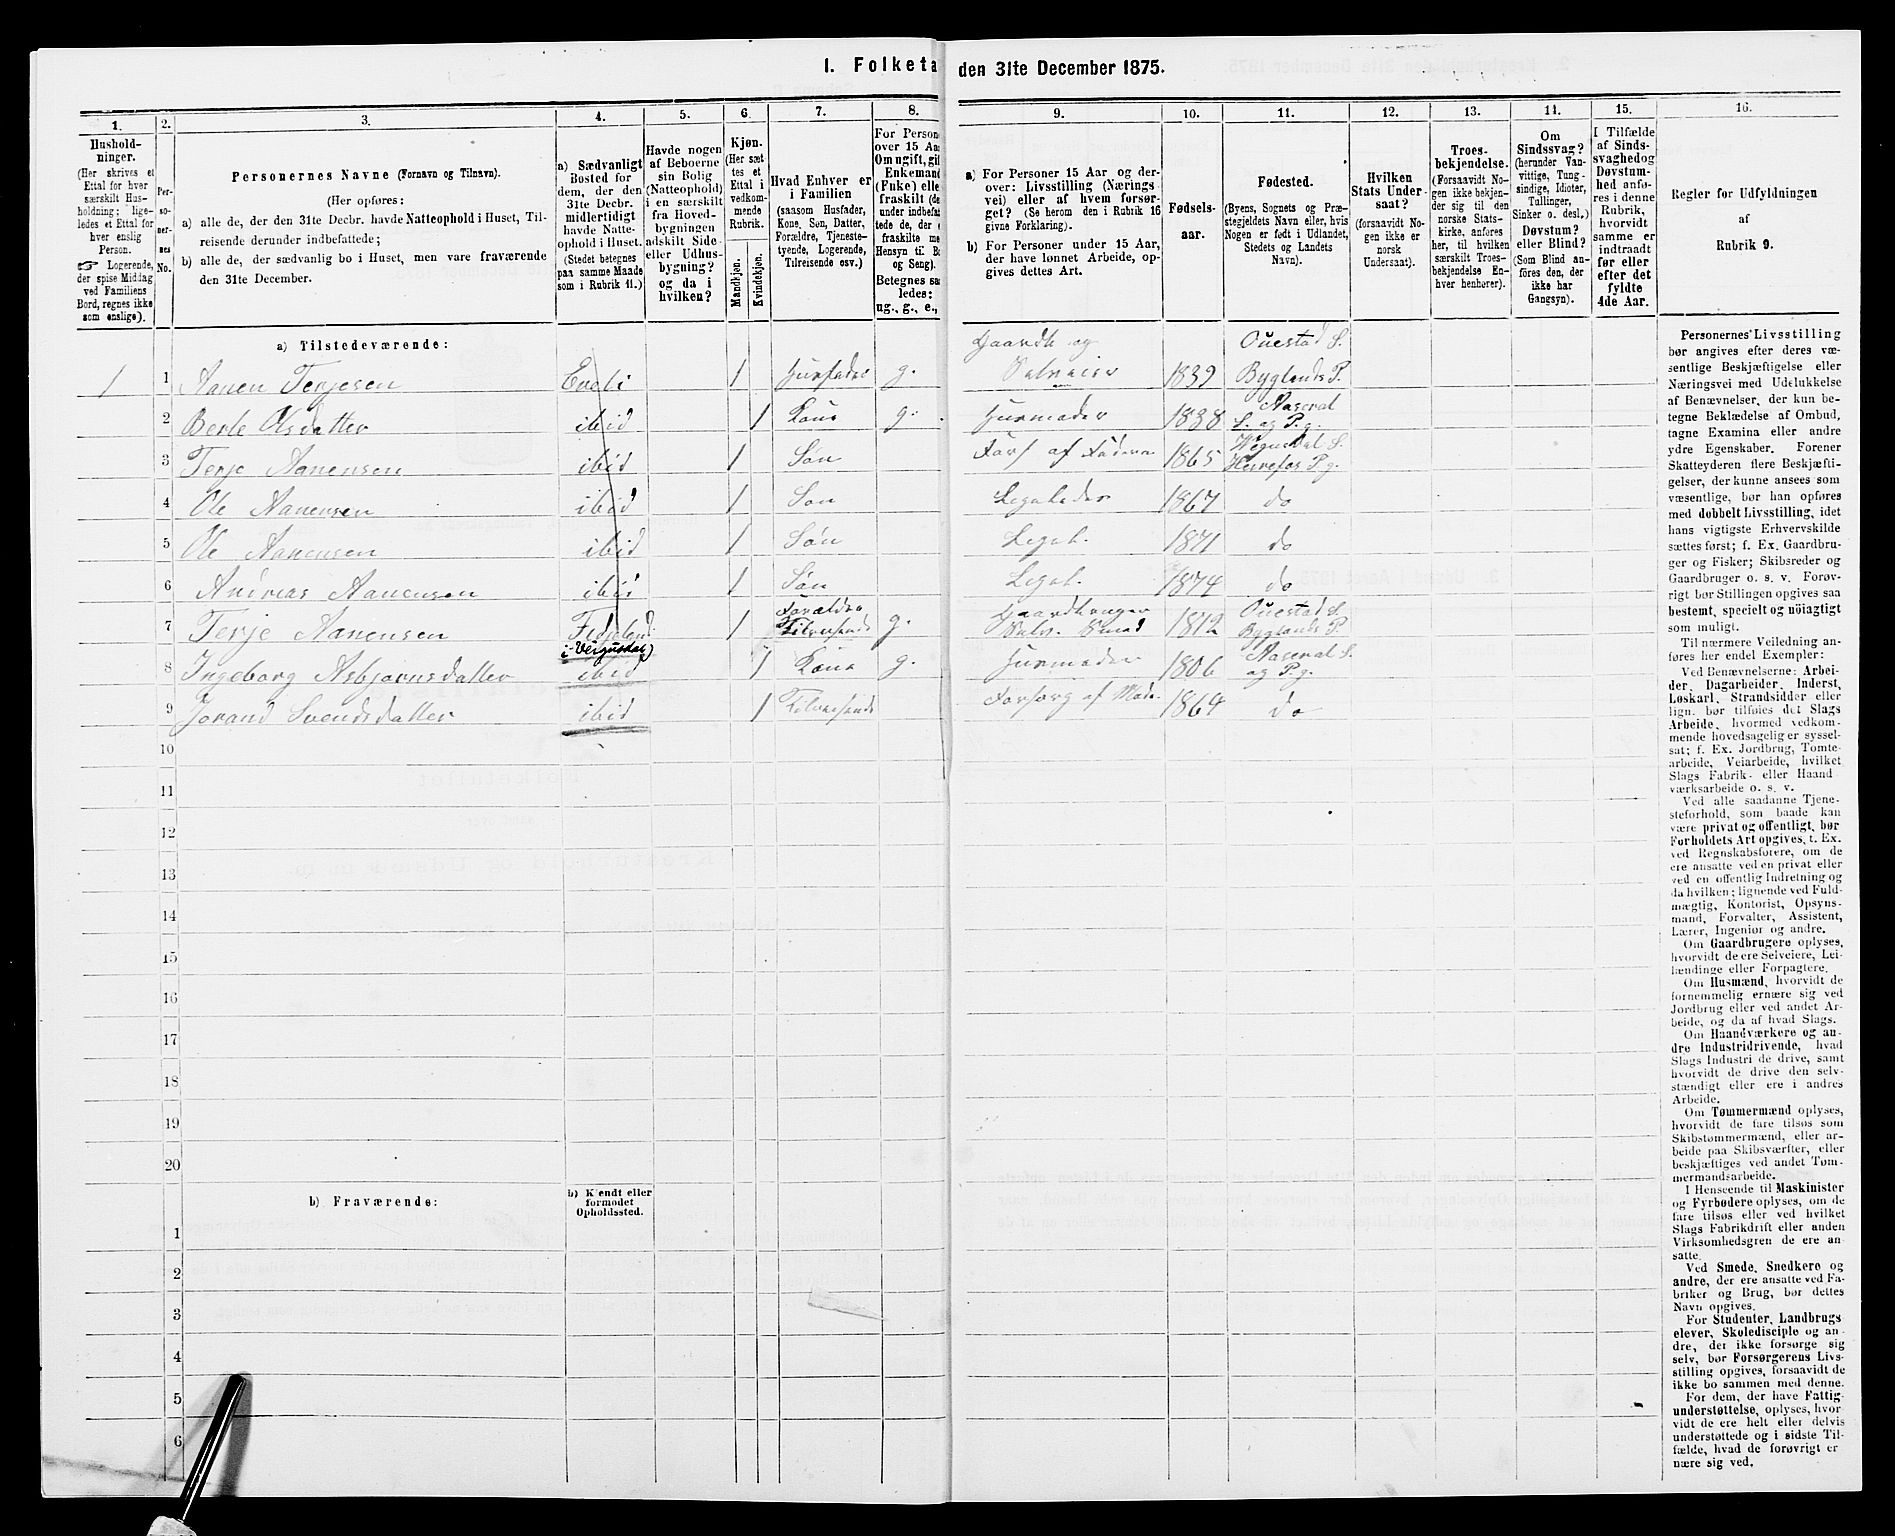 I. Folketa den 31te December 1875.
1. 2. 3. 4. 5. 6. 7. 8. 9. 10. 11. 12. 13. 14. 15. 16.
Hushold-
ninger.
(Her skrives et
Ettal for hver
særskilt Hus-
holdning; lige-
ledes et Ettal for
hver enslig
Person.
☞ Logerende,
der spise Middag
ved Familiens
Bord, regnes ikke
som enslige).
Per-
so-
ner-
nes
No.
Personernes Navne (Fornavn og Tilnavn).
(Her opføres:
a) alle de, der den 31te Decbr. havde Natteophold i Huset, Til-
reisende derunder indbefattede;
b) alle de, der sædvanlig bo i Huset, men vare fraværende
den 31te December.
a) Sædvanligt
Bosted for
dem, der den
31te Decbr.
midlertidigt
havde Natte-
ophold i Huset.
(Stedet betegnes
paa samme Maade
som i Rubrik 11.)
Havde nogen
af Beboerne
sin Bolig
(Natteophold)
i en særskilt
fra Hoved-
bygningen
adskilt Side-
eller Udhus-
bygning?
og da i
hvilken?
Kjøn.
(Her sæt-
tes et
Ettal i
vedkom-
mende
Rubrik.
Mandkjøn.
Kvindekjøn.
Hvad Enhver er
i Familien
(saasom Husfader,
Kone, Søn, Datter,
Forældre, Tjeneste-
tyende, Logerende,
Tilreisende osv.)
For Person
over 15 Aa
Om ugift, gif
Enkemand
(Fuke) elle
fraskilt (de
under indbefat
tede de, der e
fraskilte me
Hensyn til Bo
og Seng).
Betegnes saa
ledes:
ug., g., e.,
a) For Personer 15 Aar og der-
over: Livsstilling (Nærings
vei) eller af hvem forsør-
get? (Se herom den i Rubrik 16
givne Forklaring).
b) For Personer under 15 Aar,
der have lønnet Arbeide, op-
gives dettes Art.
Fødsels-
aar.
Fødested.
(Byens, Sognets og Præ-
stegjeldets Navn eller, hvis
Nogen er født i Udlandet,
Stedets og Landets
Navn).
Hvilken
Stats Under-
saat?
(forsaavidt No-
gen ikke er
norsk
Undersaat).
Troes-
bekjendelse.
(Forsaavidt No-
gen ikke bekjen-
der sig til den
norske Stats-
kirke, anføres
her, til hvilken
særskilt Troes-
bekjendelse En-
hver henhører).
Om
Sindssvag?
(herunder Van-
vittige, Tung-
sindige, Idioter,
Tullinger,
Sinker o. desl.,)
Døvstum?
eller Blind?
(Som Blind an-
føres den, der
ikke har
Gangsyn).
I Tilfælde
af Sinds-
svaghed og
Døvstum-
hed anfø-
res i denne
Rubrik,
hvorvidt
samme er
indtraadt
før eller
efter det
fyldte
4de Aar.
Regler for Udfyldningen
af
Rubrik 9.
a) Tilstedeværende:
1 1 Aanen Terjesen Eveli 1 Husfader g. Gaardb og Selveier 1839 Ouestad S. Byglands P.
2 Berte Olsdatter ibid 1 Kone g. Husmoder 1838 Aaseral S. og P.g.
3 Terje Aanensen ibid 1 Søn Fors af Fadern 1865 Wegusdal S. Herefos P.g.
4 Ole Aanensen ibid 1 Søn Legeledes 1867 do
5 Ole Aanensen ibid 1 Søn Legel. 1871 do
6 Andreas Aanensen ibid 1 Søn Legel. 1874 do
7 Terje Aanensen 1 Forældre Tilreisende g. Gaardbruger Selv. Smed 1812 Ouestad S. Byglands P.
8 Ingeborg Asbjørnsdatter ibid 1 Kone g. Husmoder 1806 Aaseral S. og P.g.
9 Jorand Svendsdatter ibid 1 Tilreisende Forsorg af Mode. 1864 do
10
11
12
13
14
15
16
17
18
19
20
b) Fraværende:
b) Kjendt eller
formodet
Opholdssted.
1
2
3
4
5
6
Personernes' Livsstilling
bør angives efter deres væ-
sentlige Beskjæftigelse eller
Næringsvei med Udelukkelse
af Benævnelser, der kun be-
tegne Beklædelse af Ombud,
tagne Examina eller andre
ydre Egenskaber. Forener
Skatteyderen flere Beskjæfti-
gelser, der kunne ansees som
væsentlige, bør han opføres
med dobbelt Livsstilling, idet
hans vigtigste Erhvervskilde
sættes først; f. Ex. Gaardbru-
ger og Fisker; Skibsreder og
Gaardbruger o. s. v. Forøv-
rigt bør Stillingen opgives saa
bestemt, specielt og nöiagtigt
som muligt.
Til nærmere Veiledning an-
føres her endel Exempler:
Ved Benævnelserne: Arbei-
der, Dagarbeider, Inderst,
Løskarl, Strandsidder eller
lign. bør tilføies det Slags
Arbeide, hvormed vedkom-
mende hovedsagelig er syssel-
sat; f. Ex. Jordbrug, Tomte-
arbeide, Veiarbeide, hvilket
Slags Fabrik- eller Haand
værksarbeide o. s. v.
Ved alle saadanne Tjene-
steforhold, som baade kan
være privat og offentligt, bør
Forholdets Art opgives, t. Ex.
ved Regnskabsførere, om de
ere ansatte ved en privat eller
ved en offentlig Indretning og
da hvilken; lignende ved Fuld-
mægtig, Kontorist, Opsyns-
mand, Forvalter, Assistent,
Lærer, Ingeniør og andre.
Om Gaardbrugere oplyses,
hvorvidt de ere Selveiere, Lei-
lændinge eller Forpagtere.
Om Husmænd, hvorvidt de
fornemmelig ernære sig ved
Jordbrug eller ved andet Ar-
beide, og da af hvad Slags.
Om Haandværkere og an-
dre Industridrivende, hvad
Slags Industri de drive, samt
hvorvidt de drive den selv-
stændigt eller ere i andres
Arbeide.
Om Tømmermænd oplyses,
hvorvidt de fare tilsøs som
Skibstømmermænd, eller ar-
beide paa Skibsværfter, eller
beskjæftiges ved andet Tøm-
mermandsarbeide.
I Henseende til Maskinister
og Fyrbødere oplyses, om de
fare tilsøs eller ved hvilket
Slags Fabrikdrift eller anden
Virksomhedsgren de ere an-
satte.
Ved Smede, Snedkere og
andre, der ere ansatte ved Fa-
briker og Brug, bør dettes
Navn opgives.
For Studenter, Landbrugs
elever, Skoledisciple og an-
dre, der ikke forsørge sig
selv, bør Forsørgerens Livs-
stilling opgives, forsaavidt de
ikke bo sammen med denne.
For dem, der have Fattig-
understøttelse, oplyses, hvor-
vidt de ere helt eller delvis
understøttede og i sidste Til-
fælde, hvad de forøvrigt er
nære sig ved.